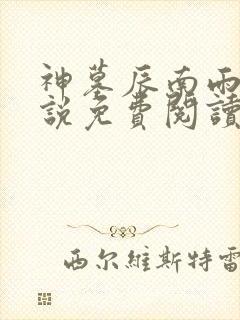 神墓辰南雨
說免費閱讀
西尔維斯特雷